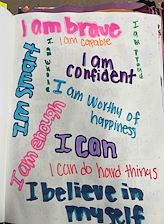 I am brave
I am capable
I am proud
I am whole
I am smart
I am confident
I am worthy of
happiness
I am enough
I can
I can do hard things
I believe in
myself